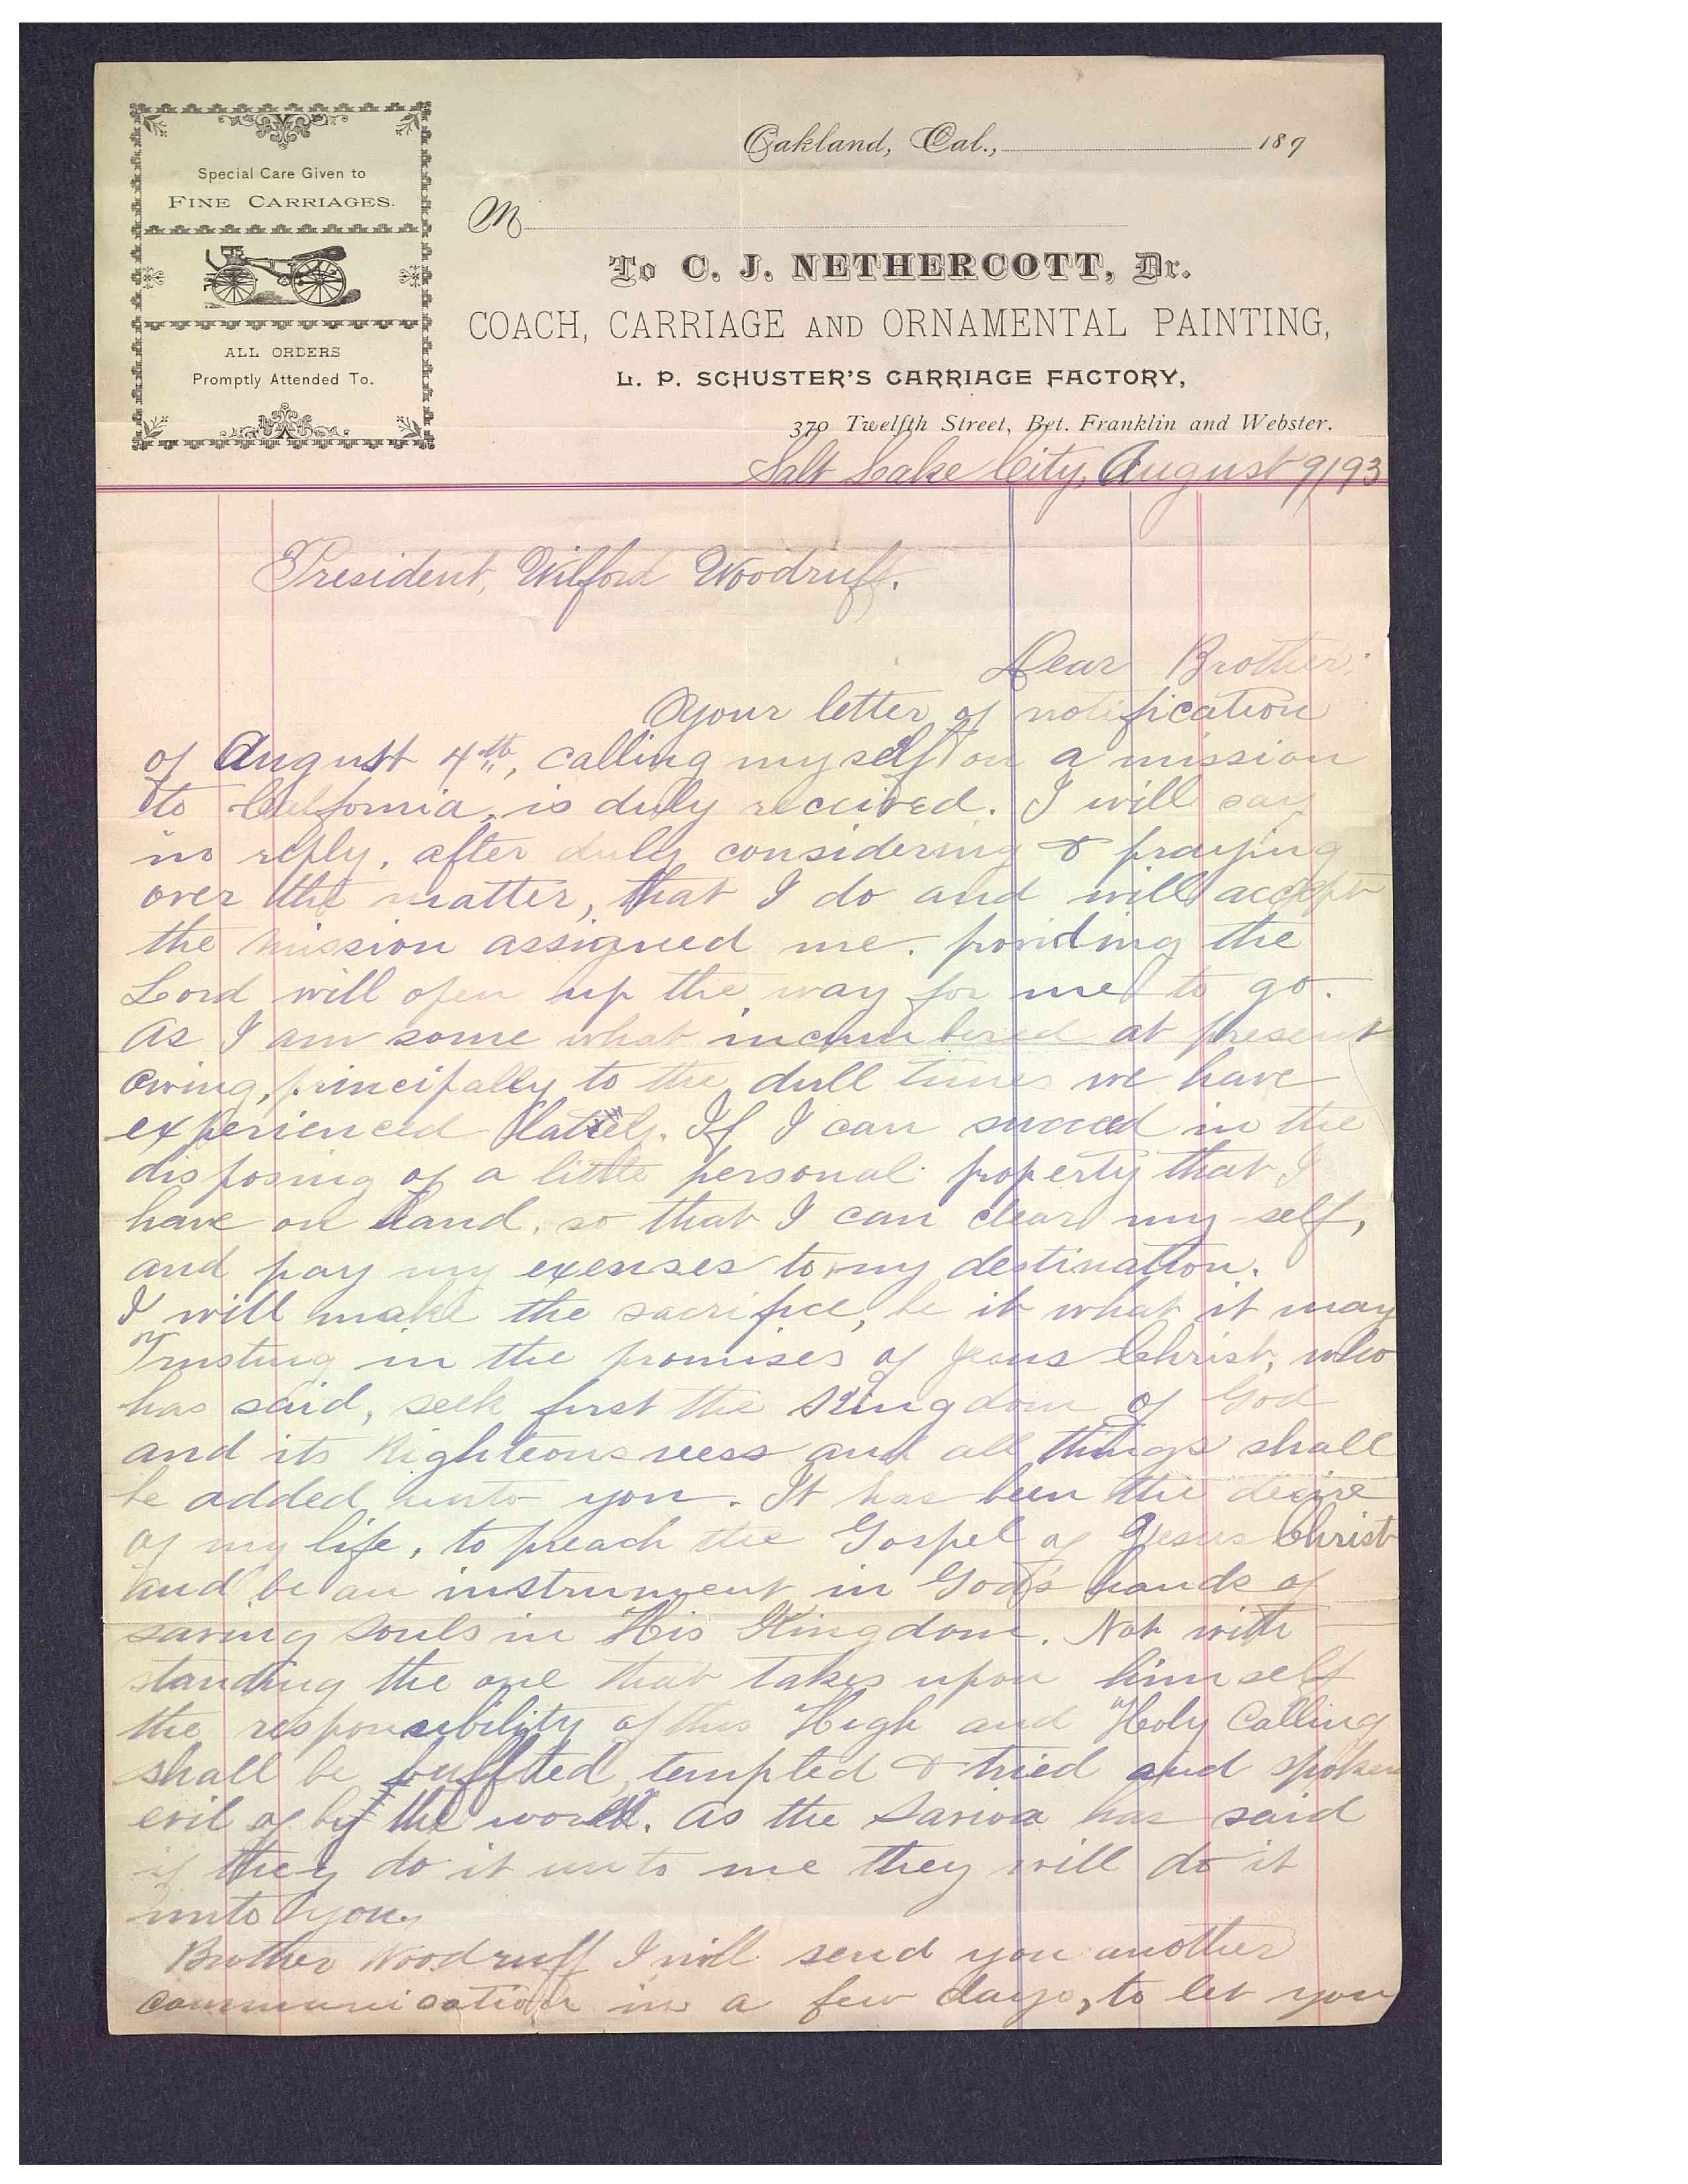 Special Care Given to
FINE CARRIAGES.
ALL ORDERS
Promptly Attended To.
Oakland, Cal., 189
M
To C. J. NETHERCOTT, Dr.
COACH, CARRIAGE AND ORNAMENTAL PAINTING,
L. P. SCHUSTER'S CARRIAGE FACTORY,
370 Twelfth Street, Bet. Franklin and Webster.
Salt Lake City, August 9/93
President, Wilford Woodruff.
Dear Brother:
Your letter of notification
of August 4th, calling myself on a mission
to California, is duly received. I will say
in reply, after duly considering & praying
over the matter, that I do and will accept
the mission assigned me. providing the
Lord will open up the way for me to go.
As I am some what incumbered at present
owing, principally to the dull times we have
experienced lately. If I can succed in the
disposing of a little personal property that I
have on hand, so that I can clear my-self,
and pay my exenses to my destination.
I will make the sacrifice, be it what it may
Trusting in the promises of Jesus Christ, who
has said, seek first the Kingdom of God
and its Righteousness and all things shall
be added unto you. It has been the desire
of my life, to preach the Gospel of Jesus Christ
and be an instrument in God's hands of
saving souls in His Kingdom. Not with
standing the one that takes upon himself
the responsibility of this High and Holy Calling
shall be buffited, tempted & tried and spoken
evil of by the world. as the Savior has said
if they do it unto me they will do it
unto you.
Brother Woodruff I will send you another
communication in a few days, to let you